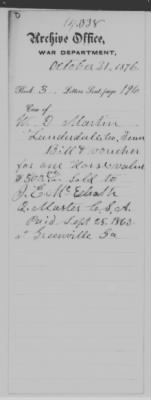 14,838
Archive Office,
WAR DEPARTMENT,
October 21, 1876
Book 3. Letters Sent page 196
Case of
W. D. Martin
Lauderdale Co, Tenn
Bill & voucher
for one Horse value
$500 sold to
J. E. McElrath
Q. Master C. S. A.
Paid Sept 25. 1863
at Greenville Ga